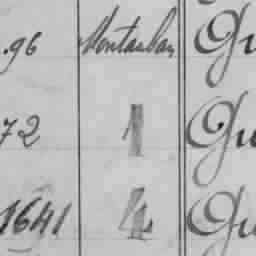 .96 Montauban Gu
72 Gu
1641 Gu